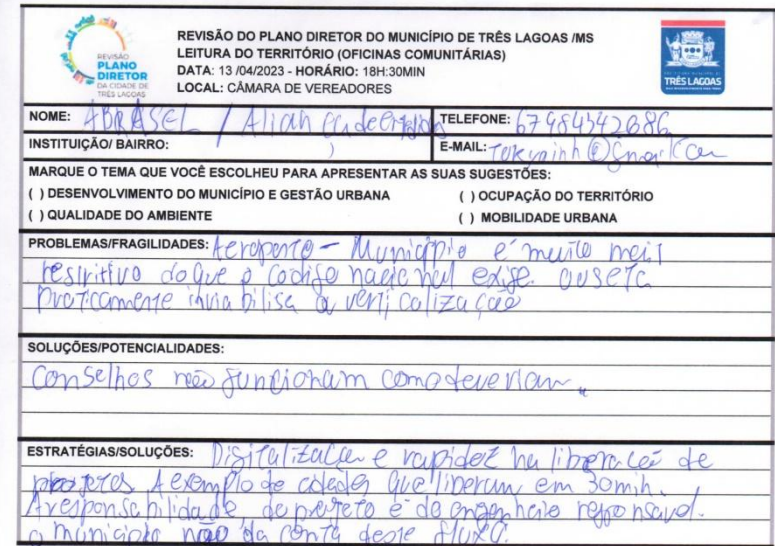 REVISÃO
PLANO
DIRETOR
DA CIDADE DE
TRÊS LAGOAS
REVISÃO DO PLANO DIRETOR DO MUNICÍPIO DE TRÊS LAGOAS /MS
LEITURA DO TERRITÓRIO (OFICINAS COMUNITÁRIAS)
DATA: 13 /04/2023 - HORÁRIO: 18H:30MIN
LOCAL: CÂMARA DE VEREADORES
TRÊS LAGOAS
NOME: ABRASEL /
TELEFONE: 67984342686
INSTITUIÇÃO/ BAIRRO:
E-MAIL:
MARQUE O TEMA QUE VOCÊ ESCOLHEU PARA APRESENTAR AS SUAS SUGESTÕES:
( ) DESENVOLVIMENTO DO MUNICÍPIO E GESTÃO URBANA ( ) OCUPAÇÃO DO TERRITÓRIO
( ) QUALIDADE DO AMBIENTE ( ) MOBILIDADE URBANA
PROBLEMAS/FRAGILIDADES: Aeroporto - Município é muito mais
restritivo do que o codigo nacional exige. ou seja
praticamente inviabilisa a verticalização
SOLUÇÕES/POTENCIALIDADES:
Conselhos não funcionam como deveriam
ESTRATÉGIAS/SOLUÇÕES: Digitalização e rapidez na liberação de
projetos A exemplo de cidades que liberam em 30min.
A responsabilidade do projeto é do engenheio responsavel.
o municipio não da conta deste fluxo.